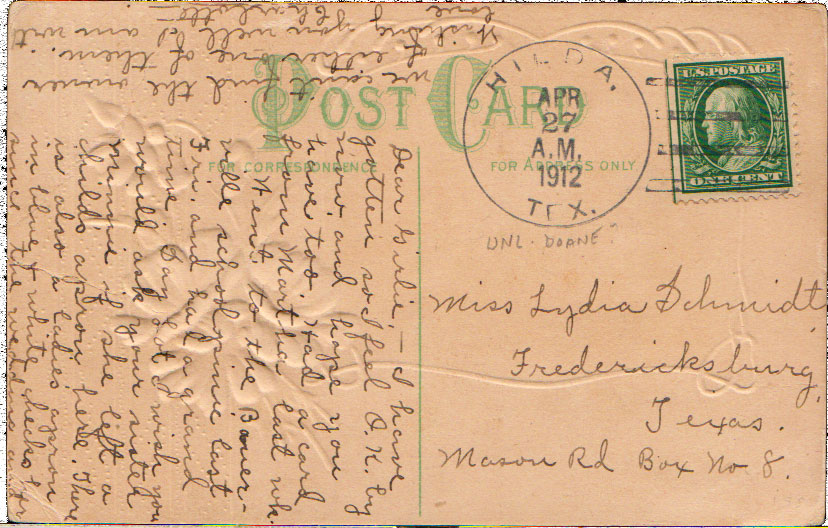 POST CARD
FOR CORRESPONDENCE
FOR ADDRESS ONLY
HILDA.
APR
27
A.M.
1912
TEX.
U.S. POSTAGE
ONE CENT
UNL. DOANE?
Miss Lydia Schmidt
Fredericksburg,
Texas.
Mason Rd Box No 8.
Dear Girlie, — I have
gotten so I feel O.K. by
now and hope you
have too. Had a card
from Martha last wk.
Went to the Baner-
ville school picnic last
Fri. and had a grand
time. Say Lyd. I wish you
would ask your sister
Minnie if she left a
childs apron here. There
is also a ladies apron
in blue & white checks
since the wedding
we can't find the owner
of either one of them.
Wishing you well I am with
love